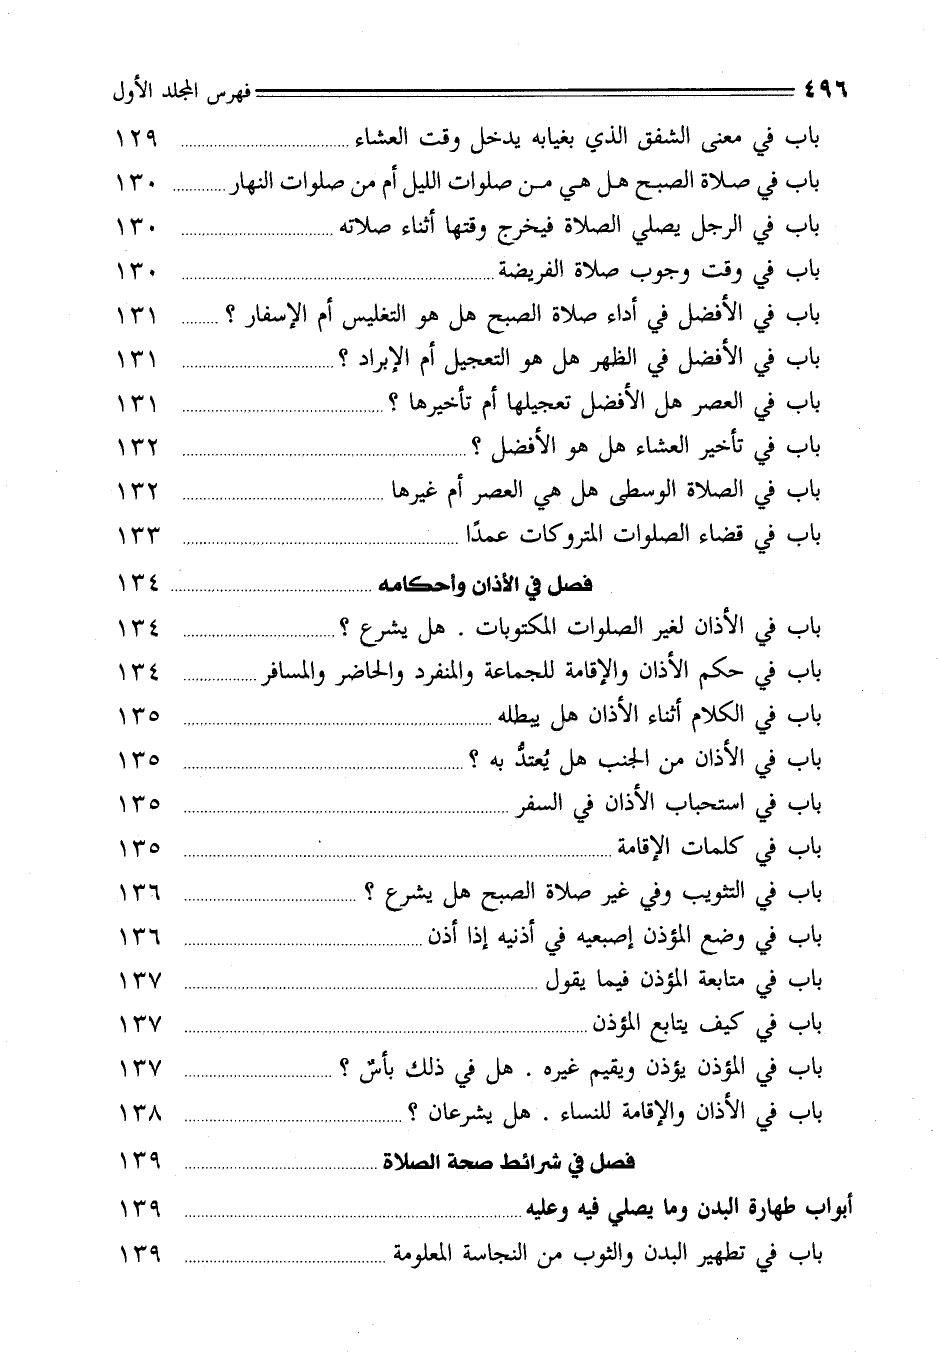 ٤٩٦ فهرس المجلد الأول
باب في معنى الشفق الذي بغيابه يدخل وقت العشاء ١٢٩
باب في صلاة الصبح هل هي من صلوات الليل أم من صلوات النهار ١٣٠
باب في الرجل يصلي الصلاة فيخرج وقتها أثناء صلاته ١٣٠
باب في وقت وجوب صلاة الفريضة ١٣٠
باب في الأفضل في أداء صلاة الصبح هل هو التغليس أم الإسفار ؟ ١٣١
باب في الأفضل في الظهر هل هو التعجيل أم الإبراد ؟ ١٣١
باب في العصر هل الأفضل تعجيلها أم تأخيرها ؟ ١٣١
باب في تأخير العشاء هل هو الأفضل ؟ ١٣٢
باب في الصلاة الوسطى هل هي العصر أم غيرها ١٣٢
باب في قضاء الصلوات المتروكات عمدًا ١٣٣
فصل في الأذان وأحكامه ١٣٤
باب في الأذان لغير الصلوات المكتوبات . هل يشرع ؟ ١٣٤
باب في حكم الأذان والإقامة للجماعة والمنفرد والحاضر والمسافر ١٣٤
باب في الكلام أثناء الأذان هل يبطله ١٣٥
باب في الأذان من الجنب هل يُعتدُّ به ؟ ١٣٥
باب في استحباب الأذان في السفر ١٣٥
باب في كلمات الإقامة ١٣٥
باب في التثويب وفي غير صلاة الصبح هل يشرع ؟ ١٣٦
باب في وضع المؤذن إصبعيه في أذنيه إذا أذن ١٣٦
باب في متابعة المؤذن فيما يقول ١٣٧
باب في كيف يتابع المؤذن ١٣٧
باب في المؤذن يؤذن ويقيم غيره . هل في ذلك بأسٌ ؟ ١٣٧
باب في الأذان والإقامة للنساء . هل يشرعان ؟ ١٣٨
فصل في شرائط صحة الصلاة ١٣٩
أبواب طهارة البدن وما يصلي فيه وعليه ١٣٩
باب في تطهير البدن والثوب من النجاسة المعلومة ١٣٩